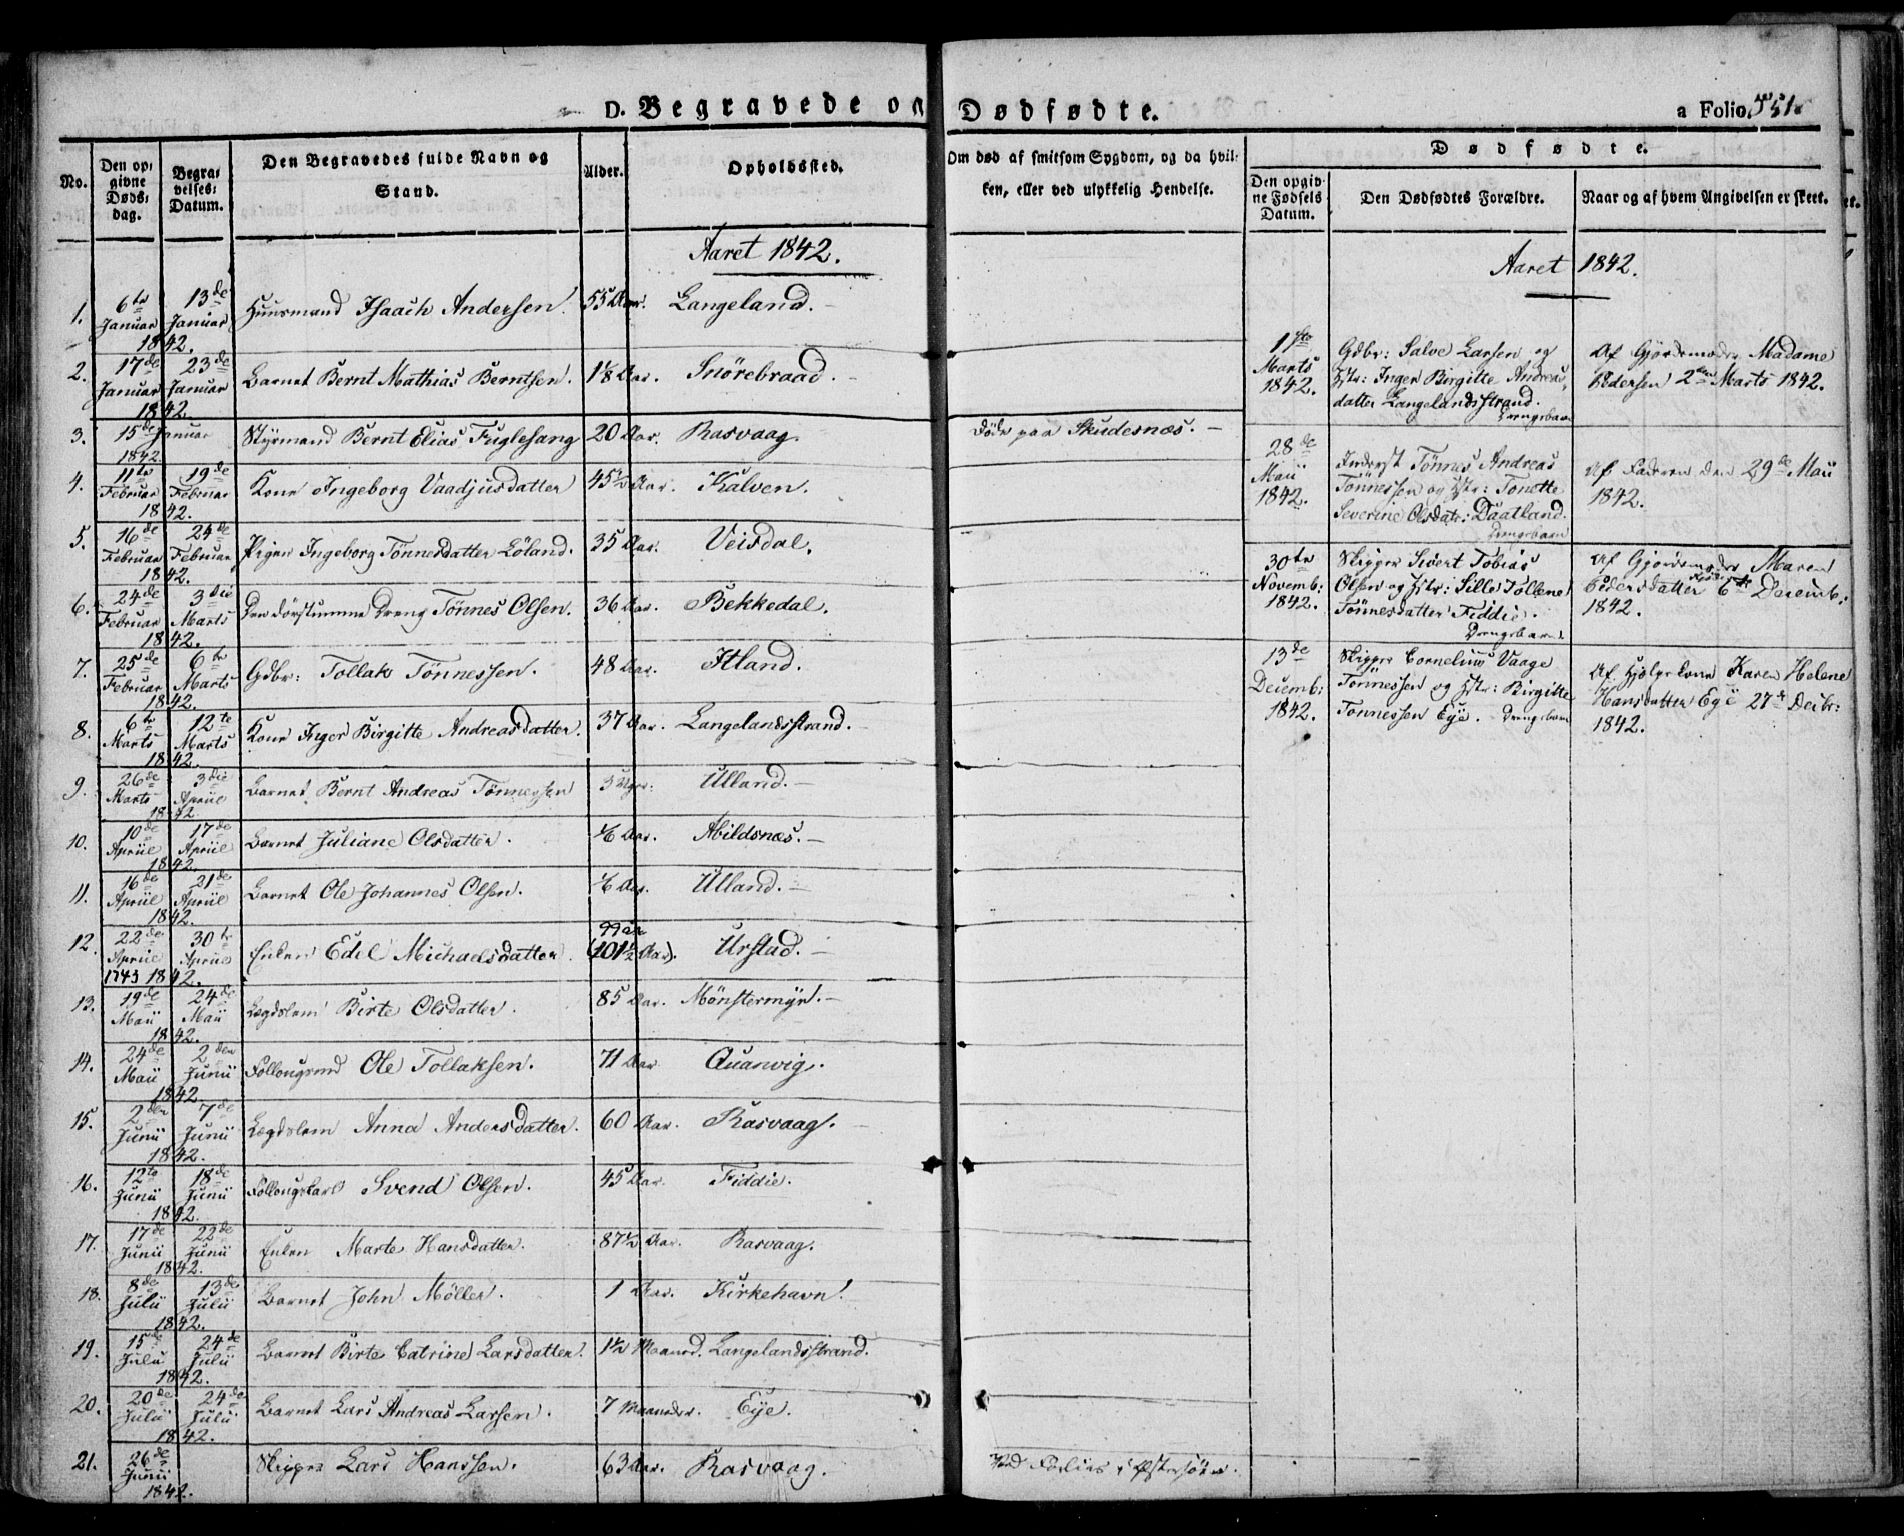 D. Begravede og Dødfødte.
a Folio 551.
No.
Den op-
givne
Døds-
dag.
Begra-
velses-
Datum.
Den Begravedes fulde Navn og
Stand.
Alder.
Opholdssted.
Om død af smitsom Sygdom, og da hvil-
ken, eller ved ulykkelig Hendelse.
Dødfødte.
Den opgiv-
ne Fødsels
Datum.
Den Dødfødtes Forældre.
Naar og af hvem Angivelsen er skeet.
Aaret 1842.
1. 6te Januar 13de Januar 1842. Huusmand Isaach Andersen. 55 Aar. Langeland.
2. 17de Januar 23de Januar 1842. Barnet Bernt Mathias Berntsen. 1 1/8 Aar. Snörebraad.
3. 15de Januar 1842. Styrmand Bernt Elias Fuglesang 20 Aar. Rasvaag. Döde paa Skudesnæs.
4. 11te Februar 19de Februar 1842. Kone Ingeborg Vaadjusdatter 45 1/2 Aar. Kalven.
5. 16de Februar 24de Februar 1842. Pigen Ingeborg Tönnesdatter Löland. 35 Aar. Veisdal.
6. 24de Februar 3die Marts 1842. Den Dövstumme Dreng Tönnes Olsen. 36 Aar. Bekkedal.
7. 25de Februar 6te Marts 1842. Gdbr: Tollak Tönnessen. 48 Aar. Itland.
8. 6te Marts 12te Marts 1842. Kone Inger Birgitte Andreasdatter. 37 Aar. Langelandsstrand.
9. 26de Marts 3die Apriil 1842 Barnet Bernt Andreas Tönnessen 3 Uger. Ulland.
10. 10de Apriil 17de Apriil 1842. Barnet Juliane Olsdatter. 1/6 Aar. Abildsnæs.
11. 16de Apriil 21de Apriil 1842. Barnet Ole Johannes Olsen. 1/6 Aar. Ulland.
12. 22de Apriil 30te Apriil 1743 1842. Enken Edel Michaelsdatter. 99 år (101 1/2 Aar). Urstad.
13. 19de Maii 24de Maii 1842. Lægdslem Birte Olsdatter. 85 Aar. Mönstermyr.
14. 24de Maii 2den Junii 1842. Föllougmand Ole Tollaksen. 71 Aar Quanvig.
15. 2den Junii 7de Junii 1842. Lægdslem Anna Andersdatter. 60 Aar. Rasvaag.
16. 12te Junii 18de Junii 1842. Föllougskarl Svend Olsen. 45 Aar. Fiddie.
17. 17de Junii 22de Junii 1842. Enken Marte Hansdatter. 87 1/2 Aar. Rasvaag.
18. 8de Julii 13de Julii 1842. Barnet John Möller. 1 Aar. Kirkehavn.
19. 15de Julii 24de Julii 1842. Barnet Birte Catrine Larsdatter. 1 1/2 Maaned. Langelandsstrand.
20. 20de Julii 24de Julii 1842. Barnet Lars Andreas Larsen. 7 Maaneder. Eije.
21. 26de Junii 1842. Skipper Lars Hanssen. 63 Aar. Rasvaag. Ved Forliis i Östersöen.
Aaret 1842.
1ste
Marts
1842.
Gdbr: Salve Larsen og
Hstr: Inger Birgitte Andreas-
datter Langelandsstrand.
Drengebarn
Af Gjordemoder Madame
Pedersen 2den Marts 1842.
28de
Maii
1842.
Inderst Tönnes Andreas
Tönnessen og Hstr: Tonette
Severine Olsdatr: Daatland.
Drengebarn
Af Faderen den 29de Maii
1842.
30te
Novemb:
1842.
Skipper Sivert Tobias
Olsen og Hstr: Sille Tollene
Tönnesdatter Fiddie.
Drengebarn.
Af Gjordemoder Maren
Pedersdatter 6te Decemb:
1842.
13de
Decemb:
1842.
Skipper Cornelius Vaage
Tönnessen og Hstr: Birgitte
Tonnessen Eye. Drengebarn
Af Hjelpekone Karen Helene
Hansdatter Eye 27de Decbr:
1842.